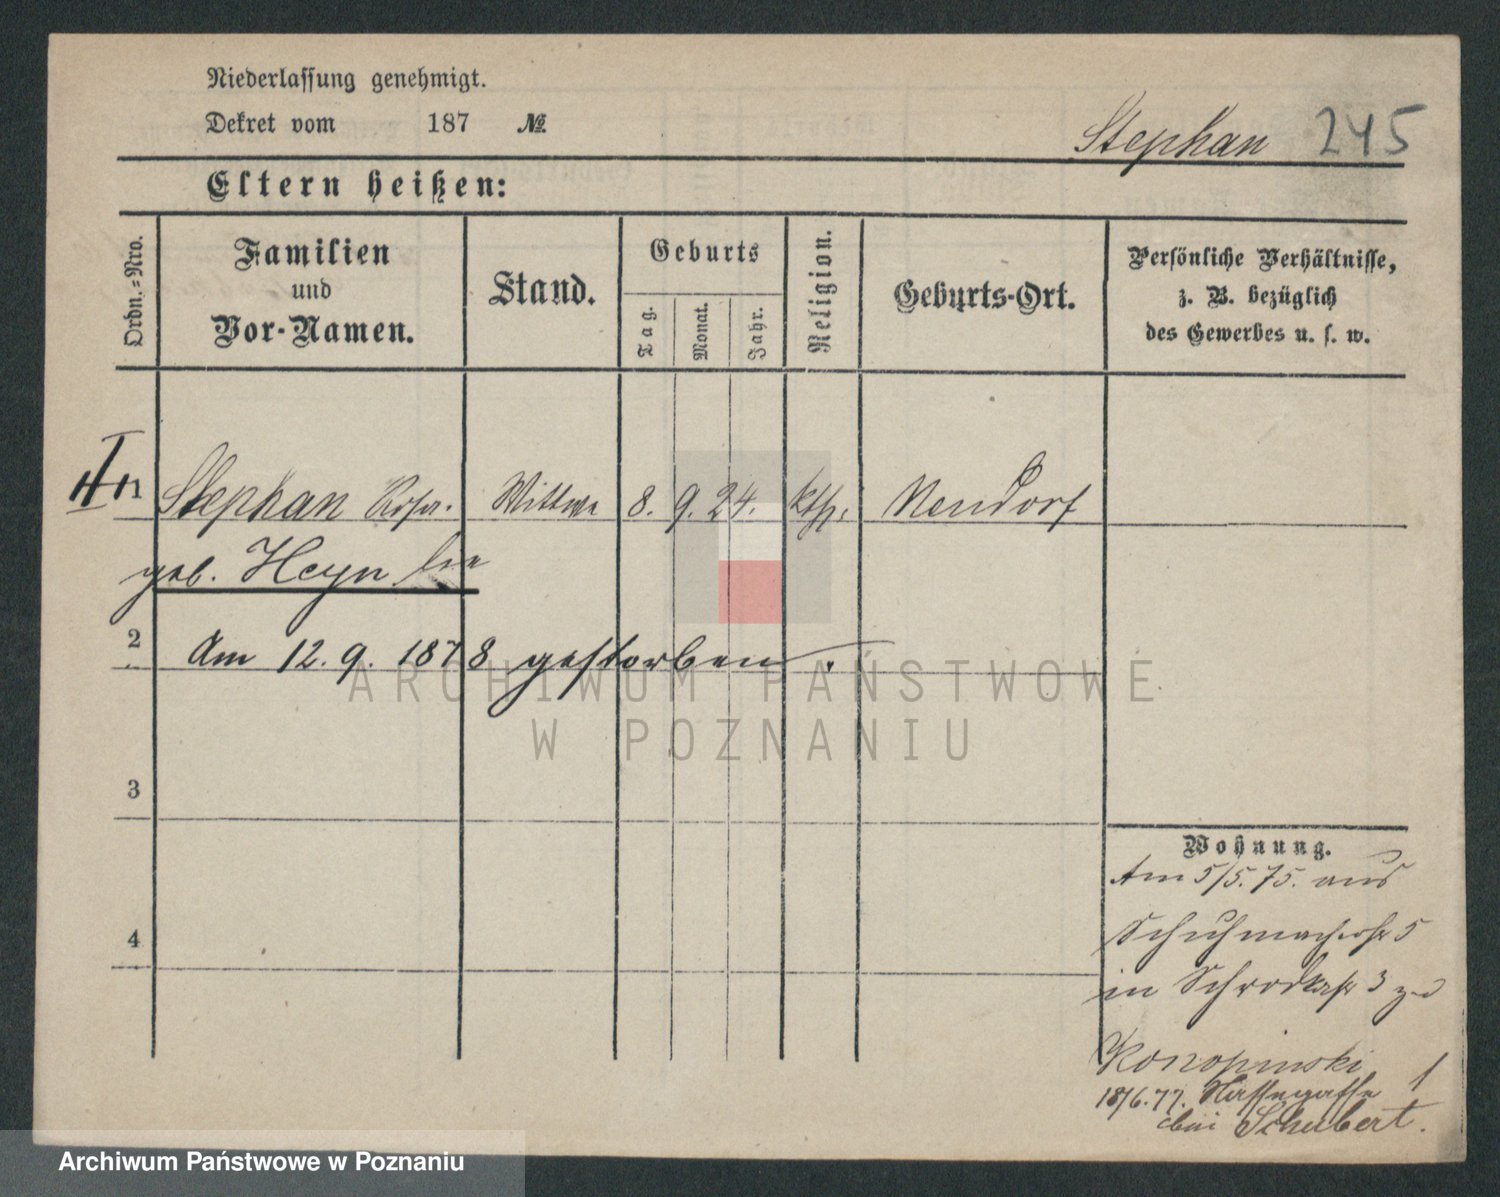 Niederlassung genehmigt.
Dekret vom 187 №
Stephan 245
Eltern heißen:
Ordn.=Nro.
Familien
und
Vor-Namen.
Stand.
Geburts
Tag.
Monat.
Jahr.
Religion.
Geburts-Ort.
Persönliche Verhältnisse,
z. B. bezüglich
des Gewerbes u. s. w.
1 Stephan Rosa. Wittwe 8. 9. 24. kth. Neudorf
geb. Heyn
2 Am 12. 9. 1878 gestorben.
3
4
Wohnung.
Am 5/5. 75. aus
Schuhmacherstr 5
in Schrodkastr 3
Konopinski
18/6. 77. Nassegasse 1
bei Schubert.
ARCHIWUM PAŃSTWOWE
W POZNANIU
Archiwum Państwowe w Poznaniu